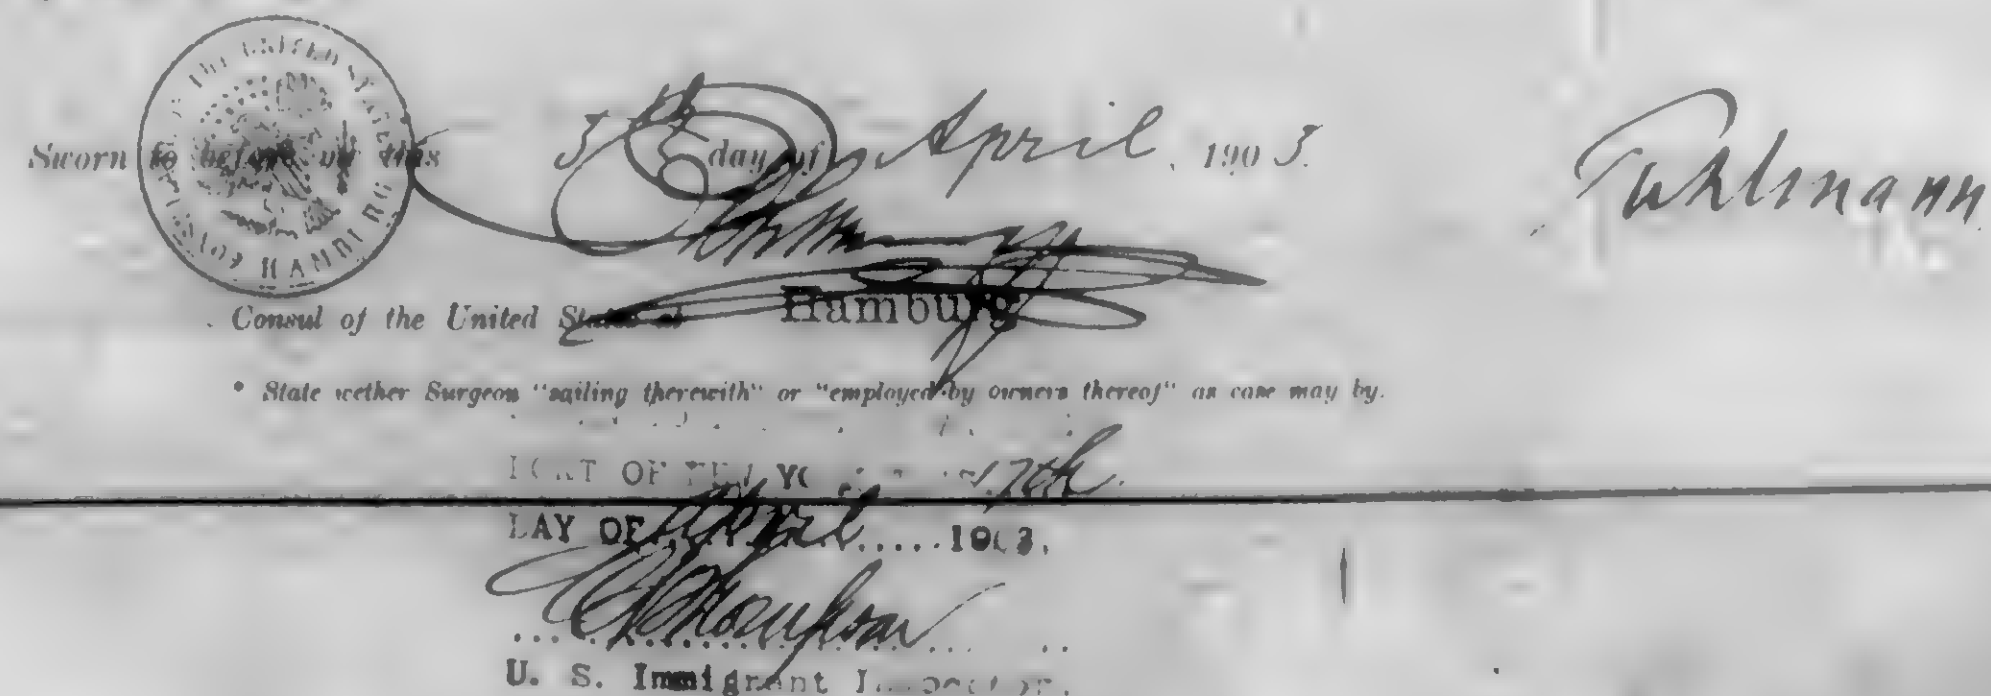 Sworn to before me this 3rd day of April, 1903.
Tuhlmann
CONSULATE OF THE UNITED STATES HAMBURG
Consul of the United States at Hamburg
* State wether Surgeon "sailing therewith" or "employed by owners thereof" as case may by.
PORT OF NEW YORK 17th
DAY OF April 1903.
U. S. Immigrant Inspector.